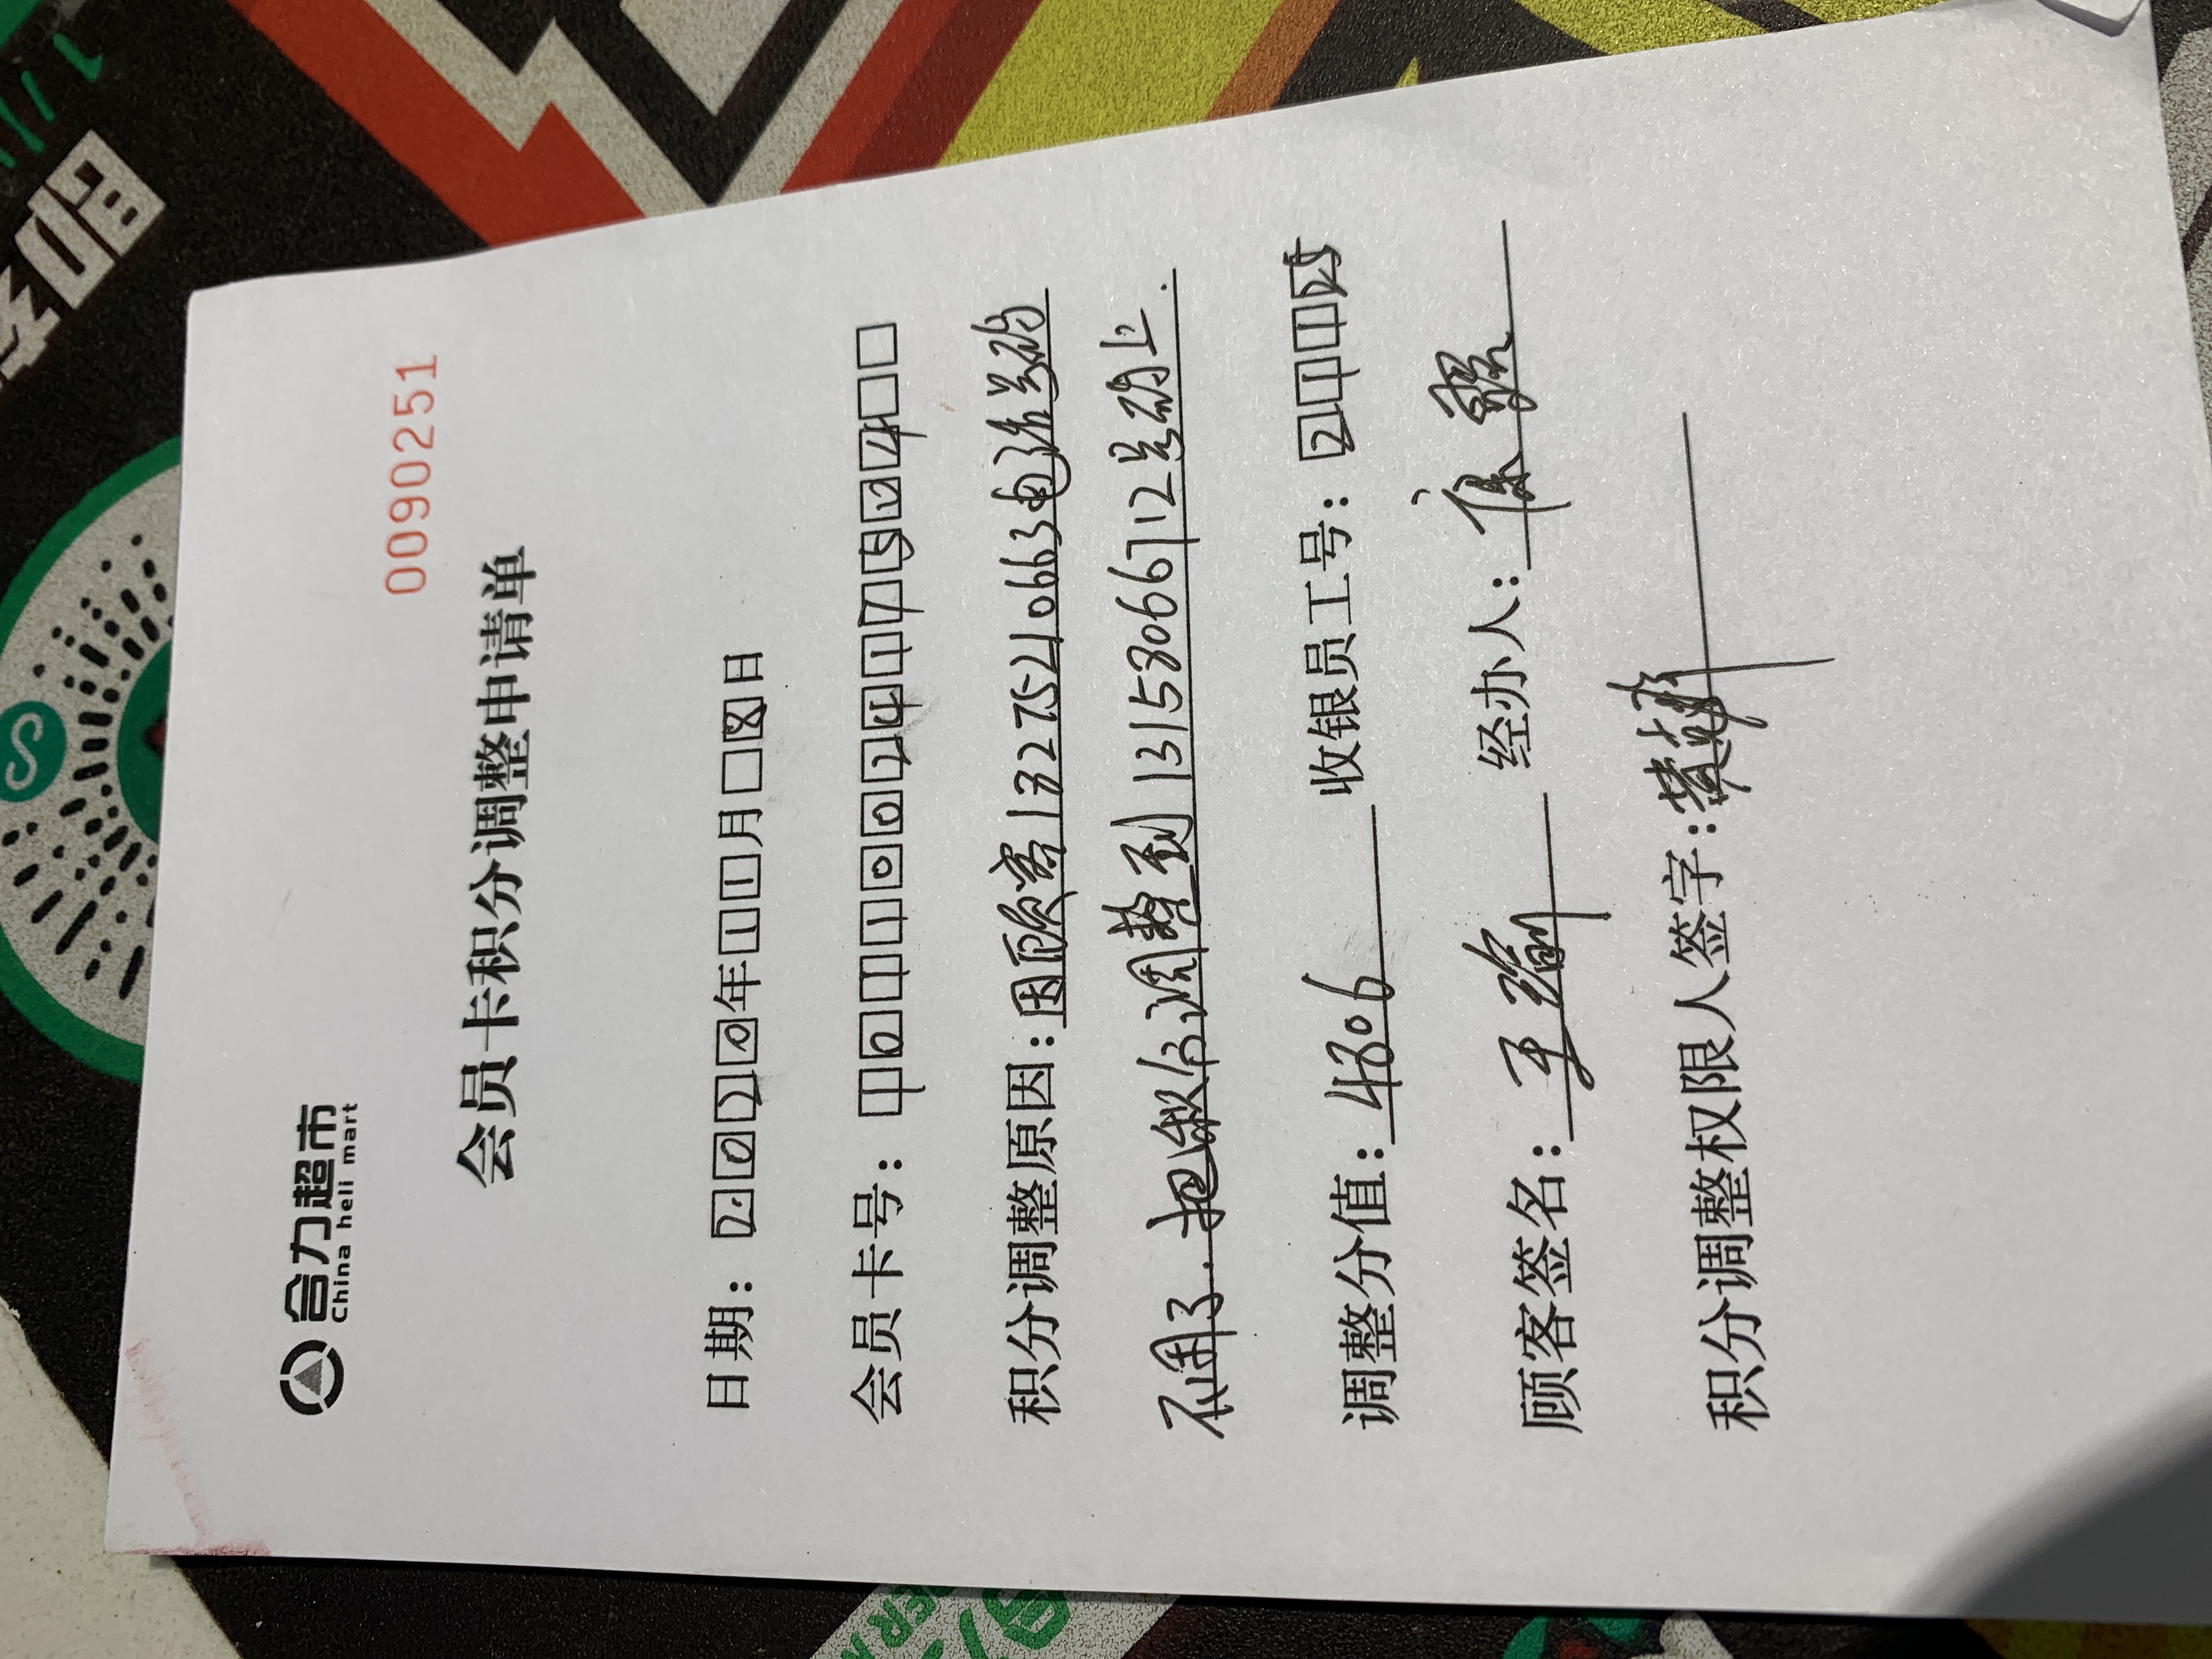 合力超市
China heli mart
0090251
会员卡积分调整申请单
日期：2020年11月8日
会员卡号：101110024177524
积分调整原因：因顾客13275210663电话号码
不用了.把积分调整到13153066712号码上.
调整分值：4806 收银员工号：21115
顾客签名：王 经办人：
积分调整权限人签字：